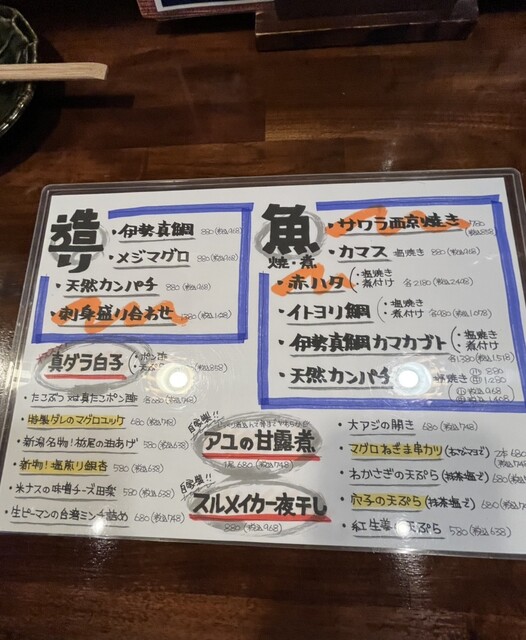 造り
・伊勢真鯛 880(税込968)
・メジマグロ 880(税込968)
・天然カンパチ 880(税込968)
・刺身盛り合わせ
魚
焼・煮
・サワラ西京焼き 780(税込858)
・カマス 塩焼き 880(税込968)
・赤ハタ ・塩焼き ・煮付け 各2180(税込2408)
・イトヨリ鯛 ・塩焼き ・煮付け
・伊勢真鯛カマカブト ・塩焼き ・煮付け 各1380(税込1518)
・天然カンパチ 塩焼き
真ダラ白子 ・ポン酢
・たこぶつ
・特製ダレのマグロユッケ 680(税込748)
・新潟名物!栃尾の油あげ 580(税込638)
・新物!塩煎り銀杏 580(税込638)
・米ナスの味噌チーズ田楽 580(税込638)
・生ピーマンの台湾ミンチ詰め 680(税込748)
自家製!!
アユの甘露煮
1尾 680(税込748)
自家製!!
スルメイカ一夜干し
880(税込968)
・大アジの開き 680(税込748)
・マグロねぎま串カツ 2本 680
・わかさぎの天ぷら (抹茶塩で) 580
・穴子の天ぷら (抹茶塩で) 680
・紅生姜の天ぷら 580(税込638)